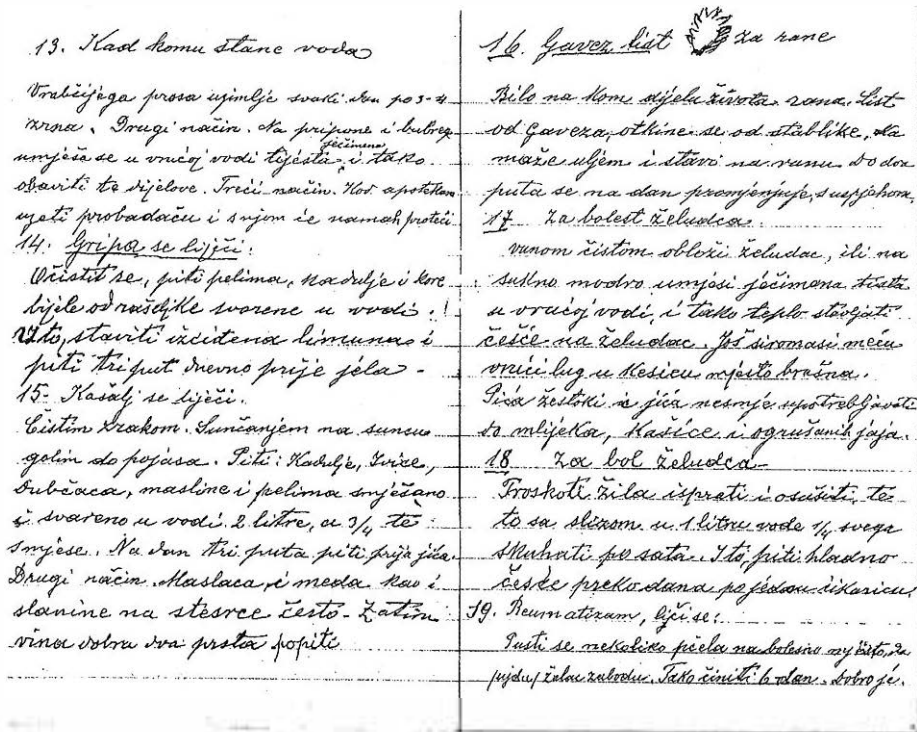 13. Kad komu stane voda
Vrabčijega prosa uzimlje svaki dan po 3-4
zrna. Drugi način. Na pripone i bubreg
ječimena
umješa se u vrućoj vodi tijesta, i tako
obaviti te dijelove. Treći način. Kod apotekara
uzeti probadaču i snjom će namah proteći
14. Gripa se liječi:
Očistit se, piti pelima, kadulje i kore
bijele od rašeljke svarene u vodi.
U to, staviti izcidena limuna i
piti tri put dnevno prije jela -
15- Kašalj se liječi.
Čistim zrakom. Sunčanjem na suncu
golim do pojasa. Piti: Kadulje, Ivice,
Dubčaca, masline i pelima smješano
i svareno u vodi 2 litre, a 3/4 te
smjese. Na dan tri puta piti prija jića.
Drugi način. Maslaca, i meda kao i
slanine na često - Zatim
vina dobra dva prsta popiti
16. Gavez list za rane
Bilo na kom dijelu života rana. List
od Gaveza, otkine se od stablike, na
maže uljem i stavi na ranu. Do dva
puta se na dan promjenjuje, s uspjehom
17 Za bolest želudca.
vunom čistom obloži želudac, ili na
sukno modro umjesi ječimana tista
u vrućoj vodi, i tako teplo stavjati
češće na želudac. Još siromasi meću
vrući lug u kesicu mjesto brašna.
Pića žestoki i jića nesmje upotrebljavati
do mlijeka, kašice i ogrušanih jaja.
18 Za bol želudca-
Troskoti žila isprati i osušiti, te
to sa slizom u 1 litru vode 1/4 svega
skuhati po sata. I to, piti hladno
češće preko dana po jednu čikaricu
19. Reumatizam, liči se:
Pusti se nekoliko pčela na bolesno mjesto, da
žalcu zabodu. Tako činiti 6 dan. Dobro je.